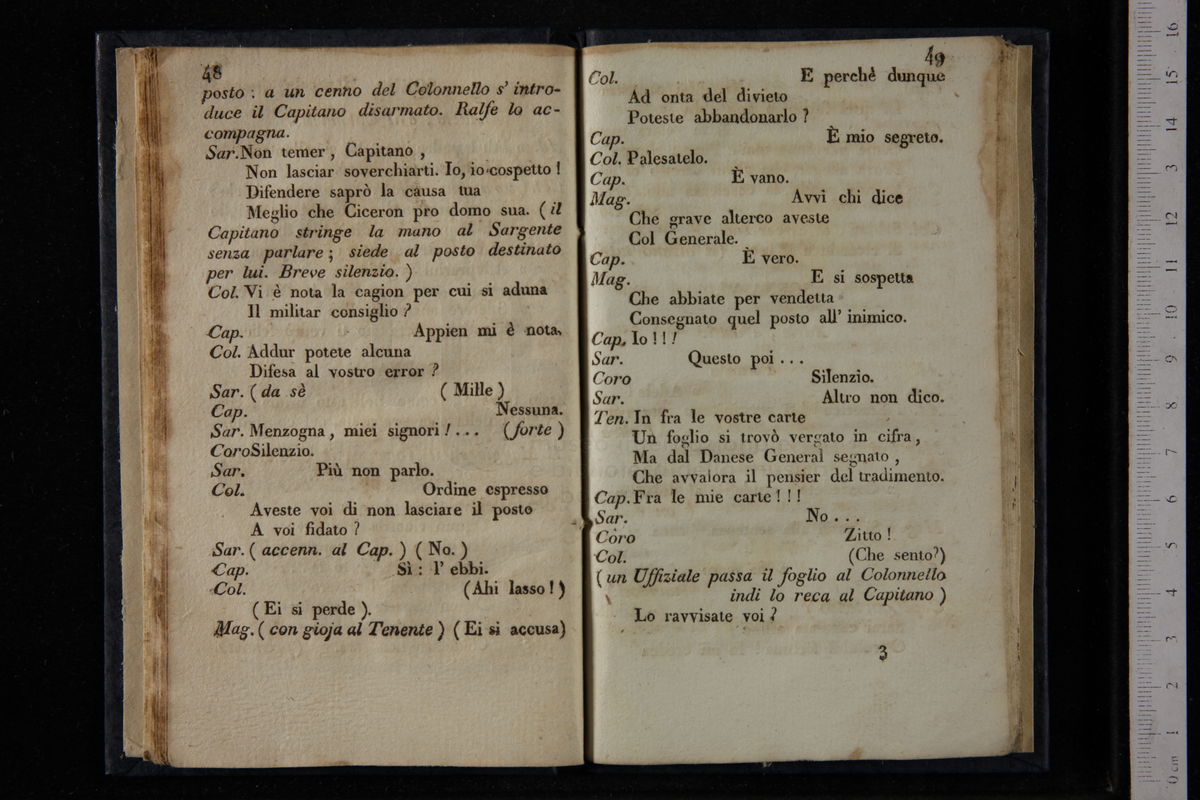 48
posto : a un cenno del Colonnello s' intro-
duce il Capitano disarmato. Ralfe lo ac-
compagna.
Sar. Non temer , Capitano ,
Non lasciar soverchiarti. Io, io cospetto !
Difendere saprò la causa tua
Meglio che Ciceron pro domo sua. ( il
Capitano stringe la mano al Sargente
senza parlare ; siede al posto destinato
per lui. Breve silenzio. )
Col. Vi è nota la cagion per cui si aduna
Il militar consiglio ?
Cap. Appien mi è nota.
Col. Addur potete alcuna
Difesa al vostro error ?
Sar. ( da sè ( Mille )
Cap. Nessuna.
Sar. Menzogna , miei signori ! . . . ( forte )
Coro Silenzio.
Sar. Più non parlo.
Col. Ordine espresso
Aveste voi di non lasciare il posto
A voi fidato ?
Sar. ( accenn. al Cap. ) ( No. )
Cap. Sì : l' ebbi.
Col. (Ahi lasso ! )
( Ei si perde ).
Mag. ( con gioja al Tenente ) ( Ei si accusa)
49
Col. E perchè dunque
Ad onta del divieto
Poteste abbandonarlo ?
Cap. È mio segreto.
Col. Palesatelo.
Cap. È vano.
Mag. Avvi chi dice
Che grave alterco aveste
Col Generale.
Cap. È vero.
Mag. E si sospetta
Che abbiate per vendetta
Consegnato quel posto all' inimico.
Cap. Io ! ! !
Sar. Questo poi . . .
Coro Silenzio.
Sar. Altro non dico.
Ten. In fra le vostre carte
Un foglio si trovò vergato in cifra ,
Ma dal Danese General segnato ,
Che avvalora il pensier del tradimento.
Cap. Fra le mie carte ! ! !
Sar. No . . .
Coro Zitto !
Col. (Che sento?)
( un Uffiziale passa il foglio al Colonnello
indi lo reca al Capitano )
Lo ravvisate voi ?
3
0 cm 1 2 3 4 5 6 7 8 9 10 11 12 13 14 15 16